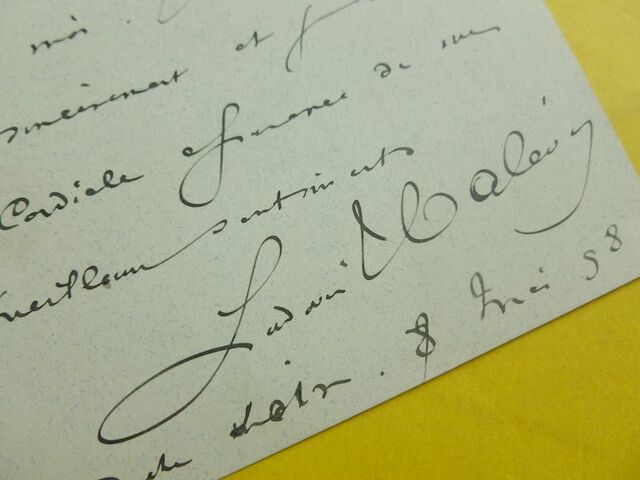 moi.
sincèrement et
Cordiale assurance de mes
meilleurs sentiments
Ludovic Halévy
8 Mai 98